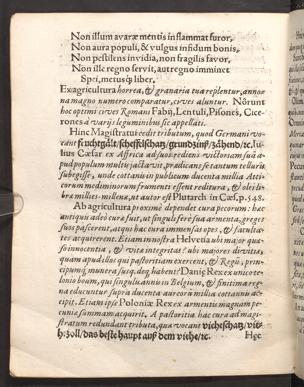 Non illum avaræ mentis inflammat furor,
Non aura populi, & vulgus infidum bonis,
Non pestilens invidia, non fragilis favor,
Non ille regno servit, aut regno imminet
Spei, metusq; liber.
Ex agricultura horrea, & granaria tua replentur, annona
magno numero comparatur, cives aluntur. Nôrunt
hoc optimi cives Romani Fabij, Lentuli, Pisones, Cicerones
à varijs leguminibus sic appellati.
Hinc Magistratui cedit tributum, quod Germani vocant
feuchtgält/scheffelschatz/grundzinß/zähend/tc. Iulius
Cæsar ex Africa ad suos rediens victoriam suā apud
populum multis jactavit, prædicans, se tantum telluris
subegisse, unde cottanis in publicum ducenta millia Atticorum
medimnorum frumenti essent reditura, & olei libra
milies-millenis, ut autor est Plutarch: in Cæs. p. 548.
Ab agricultura proximè dependet cura pecorum: hæc
antiquis adeò curæ fuit, ut singuli ferè sua armenta, greges
suos pascerent, atque hac cura immensas opes, & facultates
acquirerent. Etiam in nostra Helvetia ubi major quasi
innocentia, & vitæ integritas: ibi majores divitiæ,
quàm apud illos qui pastoritiam exercent, & Regii, principumq;
munera usq; deq; habent? Daniæ Rex ex unico telonio
boum, qui singulis annis in Belgium, & finitima regna
educuntur supra ducenta aureorū millia cottannis accipit.
Etiam ipse Poloniæ Rex ex armentis magnam pecuniæ
summam acquirit. A pastoritia hac cura ad magistratum
redundant tributa, quæ vocant vichschatz/vieh:zoll/
das beste haupt auß dem viche/tc.
Hæc